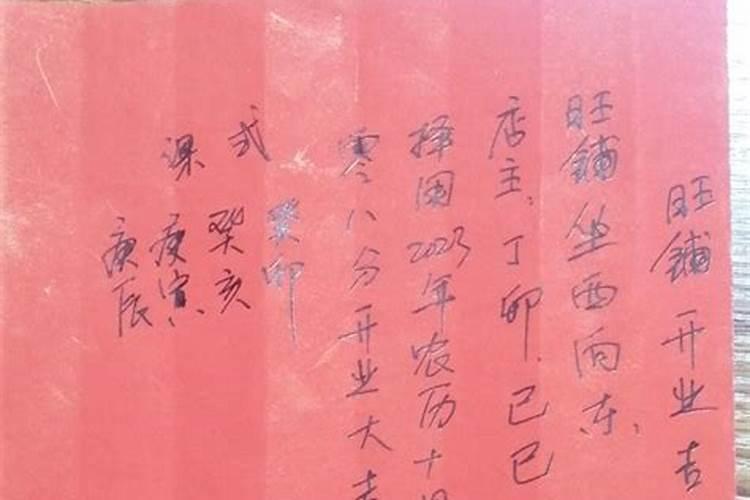 旺鋪开业吉
旺鋪坐西向东、
店主、丁卯、己巳
择国2023年农历十月
零八分开业大吉
癸卯
式 癸亥
课 庚寅、
庚辰